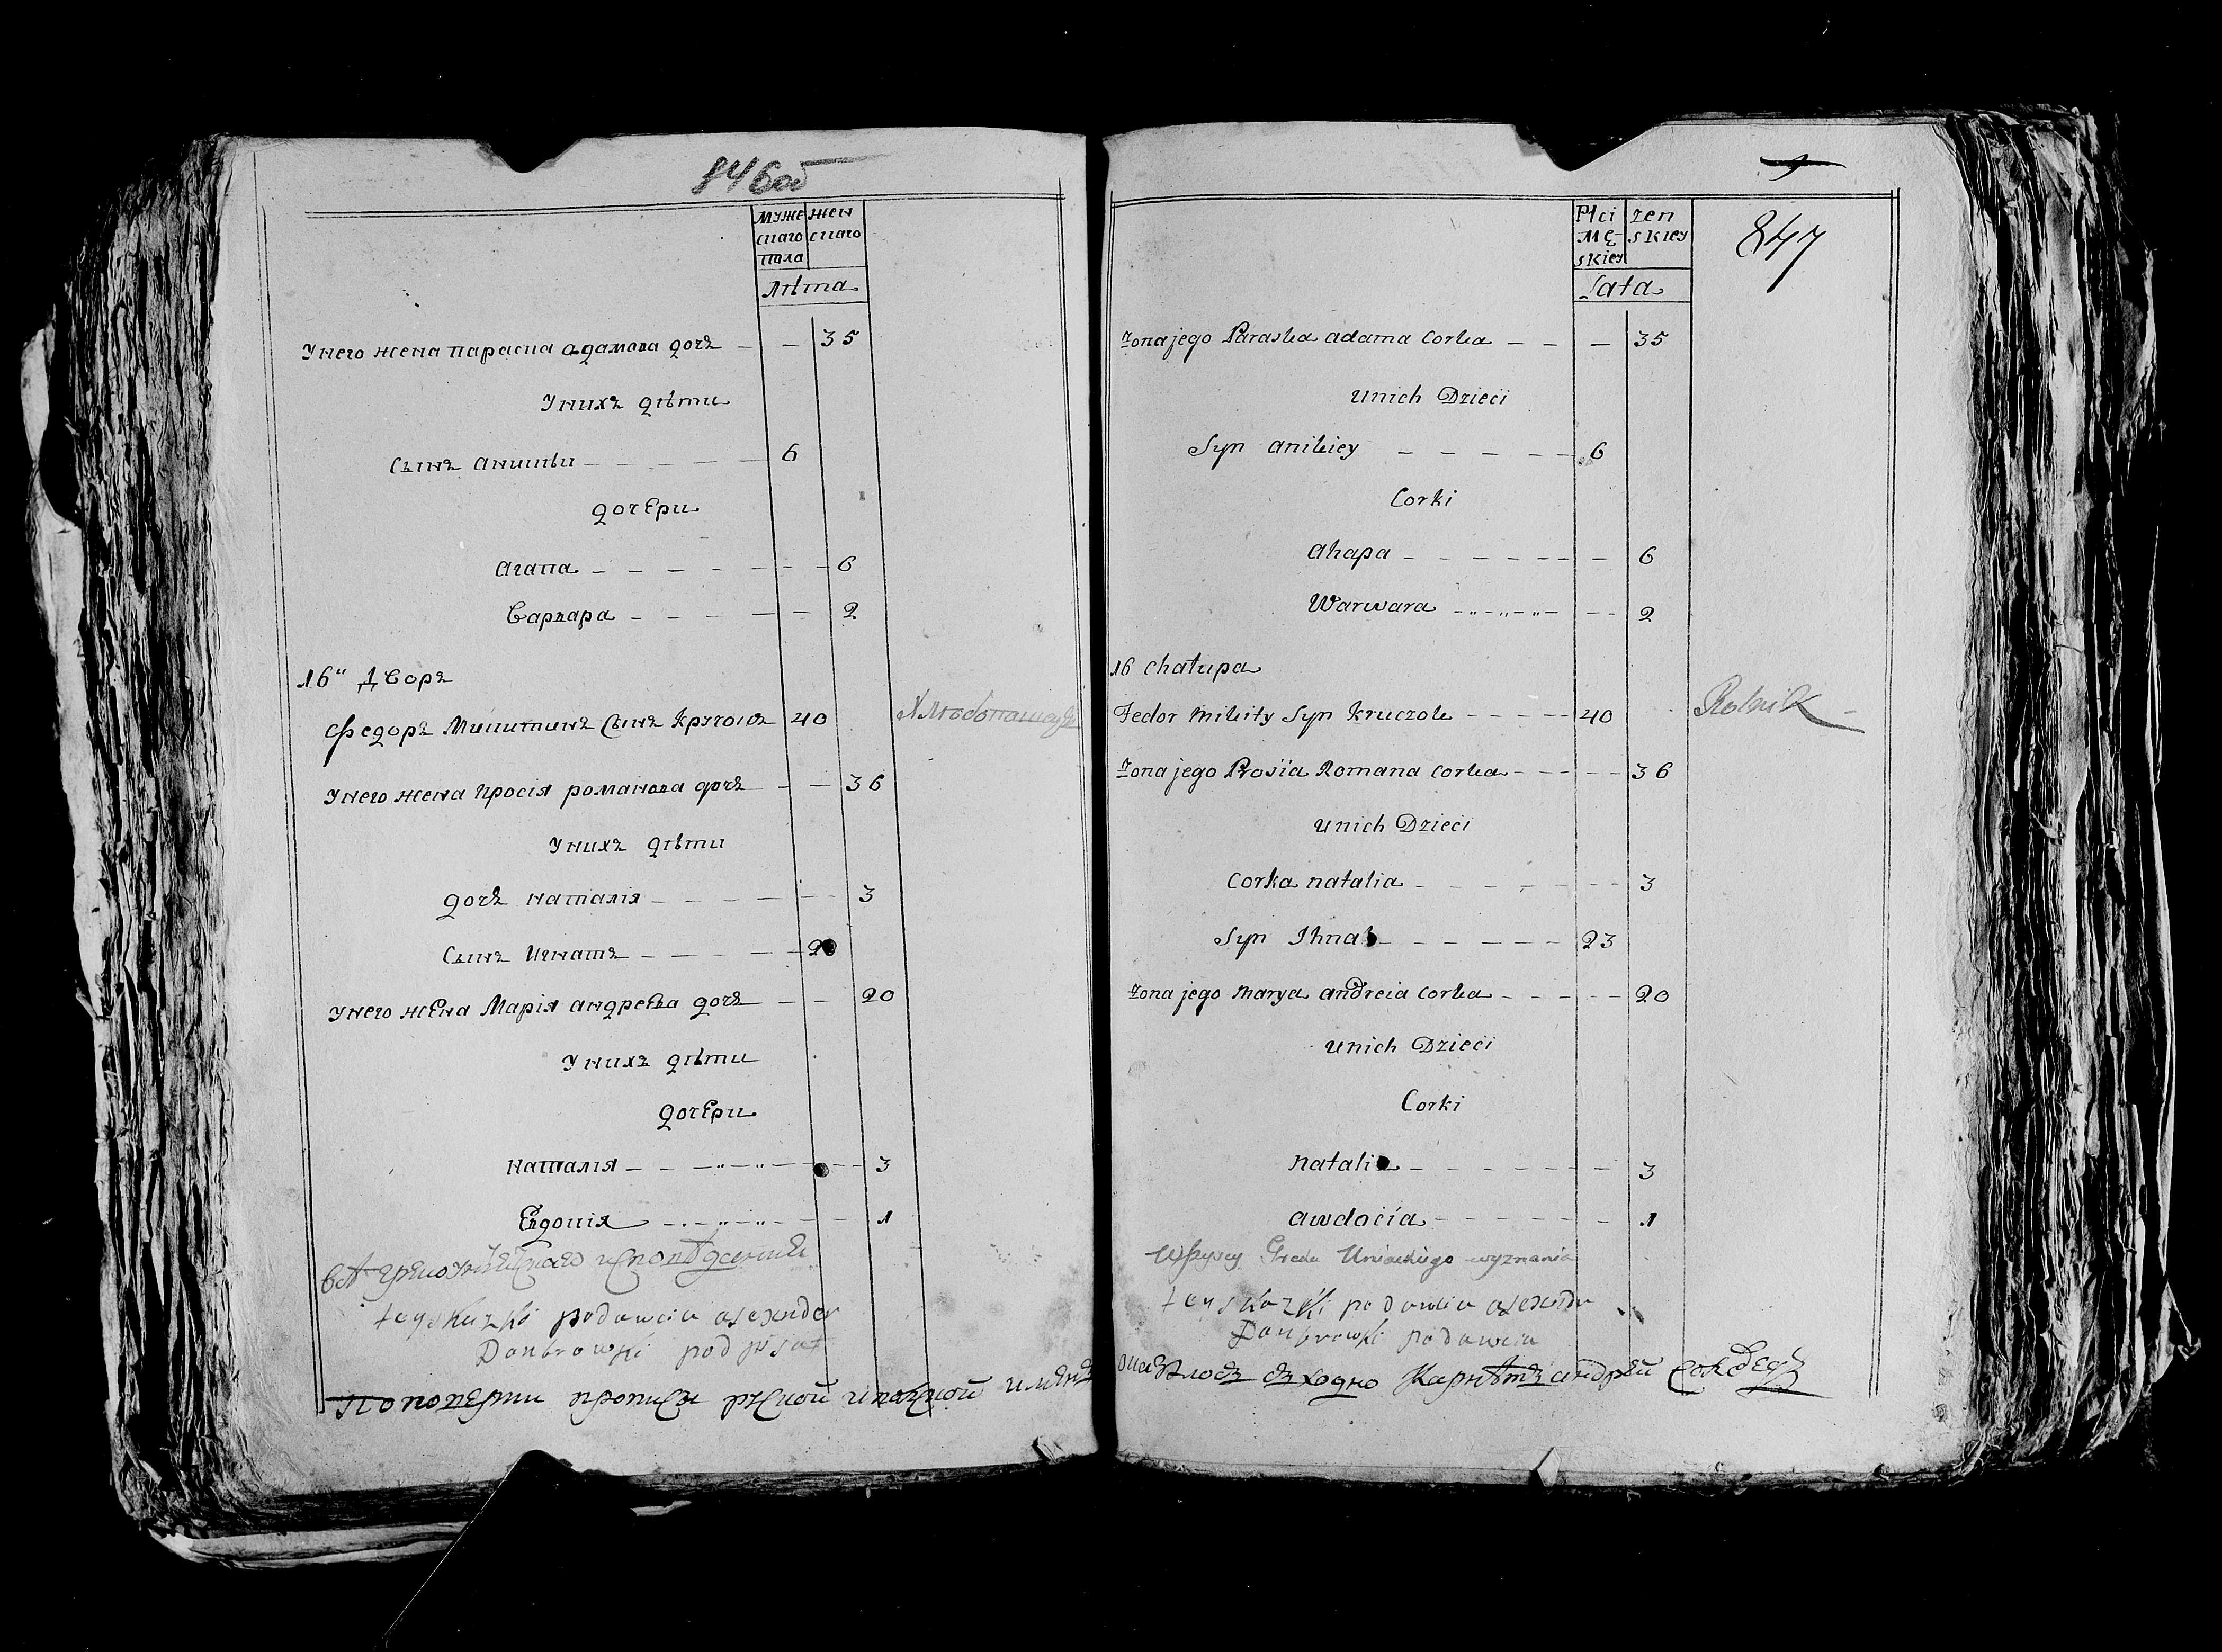 846об
муже жен
скаго скаго
пола
Лѣта
У него жена параска адамова дочь — — 35
У нихъ дѣти
Сынъ аникѣи — — — — — 6
дочери
агапа — — — — — — 6
Варвара — — — — — 2
16" Дворъ
Федоръ Микитинъ Сынъ Кручокъ 40
У него жена просія романова дочь — — 36
У нихъ дѣти
дочь наталія — — — — — 3
Сынъ Игнатъ — — — — — 2
У него жена Марія андреева дочь — — 20
У нихъ дѣти
дочери
наталія — — — — — — 3
Евдокія — — — — — 1
podawcia
Donbrowski podpisał
847
Płci żen
Mę- skiey
skiey
Lata
Żona jego Paraska adama Corka — — — 35
unich Dzieci
Syn anikiey — — — — — 6
Corki
ahapa — — — — — — 6
Warwara — — — — — 2
16 chałupa
Fedor mikity Syn kruczok — — — — 40 Rolnik
Żona jego Prosia Romana corka — — — — 36
unich Dzieci
Corka natalia — — — — — — 3
Syn Ihnat — — — — — — 23
Żona jego marya andreia corka — — — — — 20
unich Dzieci
Corki
natalia — — — — — — 3
awdocia — — — — — — 1
Wszyscy Greko Uniackiego wyznania
podawcia
Donbrowski podawcia